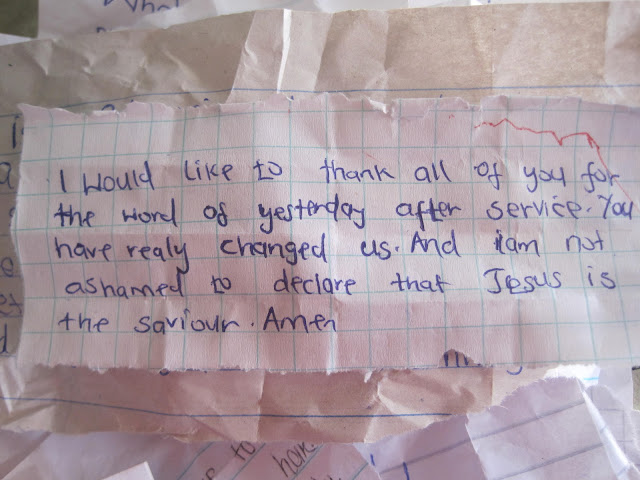 I would like to thank all of you for
the word of yesterday after service. You
have realy changed us. And iam not
ashamed to declare that Jesus is
the saviour. Amen
to